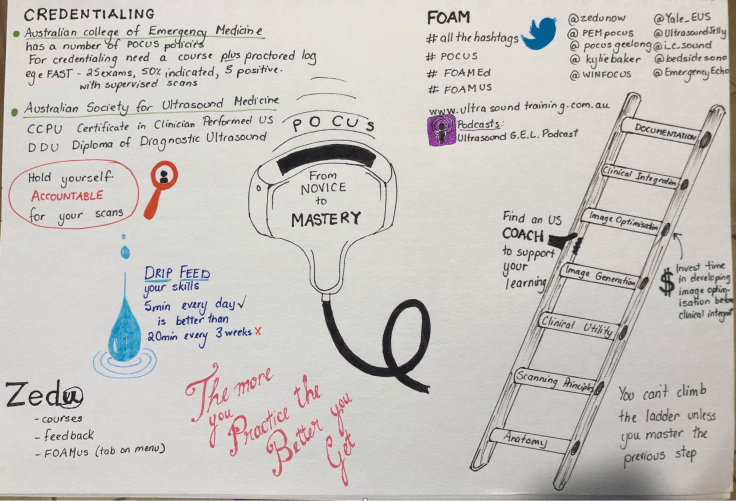 CREDENTIALING
Australian college of Emergency Medicine
has a number of POCUS policies
For credentialing need a course plus proctored log
eg eFAST - 25 exams, 50% indicated, 5 positive.
with supervised scans
Australian Society for Ultrasound Medicine
CCPU Certificate in Clinician Performed US
DDU Diploma of Diagnostic Ultrasound
Hold yourself
ACCOUNTABLE
for your scans
DRIP FEED
your skills
5min every day ✓
is better than
20min every 3 weeks x
Zedu
- courses
- feedback
- FOAMus (tab on menu)
The more
you
Practice the
Better you
Get
POCUS
From
NOVICE
to
MASTERY
FOAM
# all the hashtags
# POCUS
# FOAMEd
# FOAMUS
@zedunow
@PEMpocus
@pocusgeelong
@kyliebaker
@WINFOCUS
@Yale_EUS
@UltrasoundJelly
@i_c_sound
@bedsidesono
@EmergencyEcho
www.ultrasoundtraining.com.au
Podcasts:
Ultrasound G.E.L. Podcast
DOCUMENTATION
Clinical Integration
Image Optimisation
Image Generation
Clinical Utility
Scanning Principles
Anatomy
Find an US
COACH
to support
your
learning
$ Invest time
in developing
image optim-
isation before
clinical
You can't climb
the ladder unless
you master the
previous step